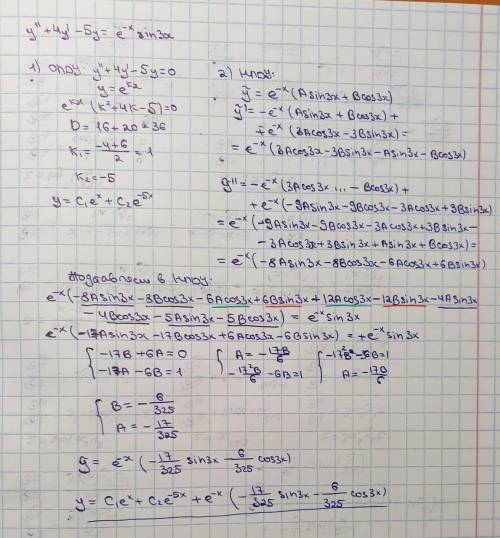 y'' + 4y' - 5y = e^{-x} sin3x
1) ОЛДУ: y'' + 4y' - 5y = 0
y = e^{kx}
e^{kx}(k² + 4k - 5) = 0
D = 16 + 20 = 36
k₁ = \frac{-4+6}{2} = 1
k₂ = -5
y = C₁e^x + C₂e^{-5x}
2) НЛДУ:
ỹ = e^{-x}(Asin3x + Bcos3x)
ỹ' = -e^{-x}(Asin3x + Bcos3x) +
+ e^{-x}(3Acos3x - 3Bsin3x) =
= e^{-x}(3Acos3x - 3Bsin3x - Asin3x - Bcos3x)
ỹ'' = -e^{-x}(3Acos3x ... - Bcos3x) +
+ e^{-x}(-9Asin3x - 9Bcos3x - 3Acos3x + 3Bsin3x)
= e^{-x}(-9Asin3x - 9Bcos3x - 3Acos3x + 3Bsin3x -
- 3Acos3x + 3Bsin3x + Asin3x + Bcos3x) =
= e^{-x}(-8Asin3x - 8Bcos3x - 6Acos3x + 6Bsin3x)
Подставляем в НЛДУ:
e^{-x}(-8Asin3x - 8Bcos3x - 6Acos3x + 6Bsin3x + 12Acos3x - 12Bsin3x - 4Asin3x
- 4Bcos3x - 5Asin3x - 5Bcos3x) = e^{-x} sin3x
e^{-x}(-17Asin3x - 17Bcos3x + 6Acos3x - 6Bsin3x) = + e^{-x} sin3x
{ -17B + 6A = 0 { A = -\frac{17B}{6} { -17²B - 36B = 1
{ -17A - 6B = 1 { -\frac{17²B}{6} - 6B = 1 { A = -\frac{17B}{6}
{ B = -\frac{6}{325}
{ A = -\frac{17}{325}
ỹ = e^{-x}(-\frac{17}{325} sin3x - \frac{6}{325} cos3x)
y = C₁e^x + C₂e^{-5x} + e^{-x}(-\frac{17}{325} sin3x - \frac{6}{325} cos3x)